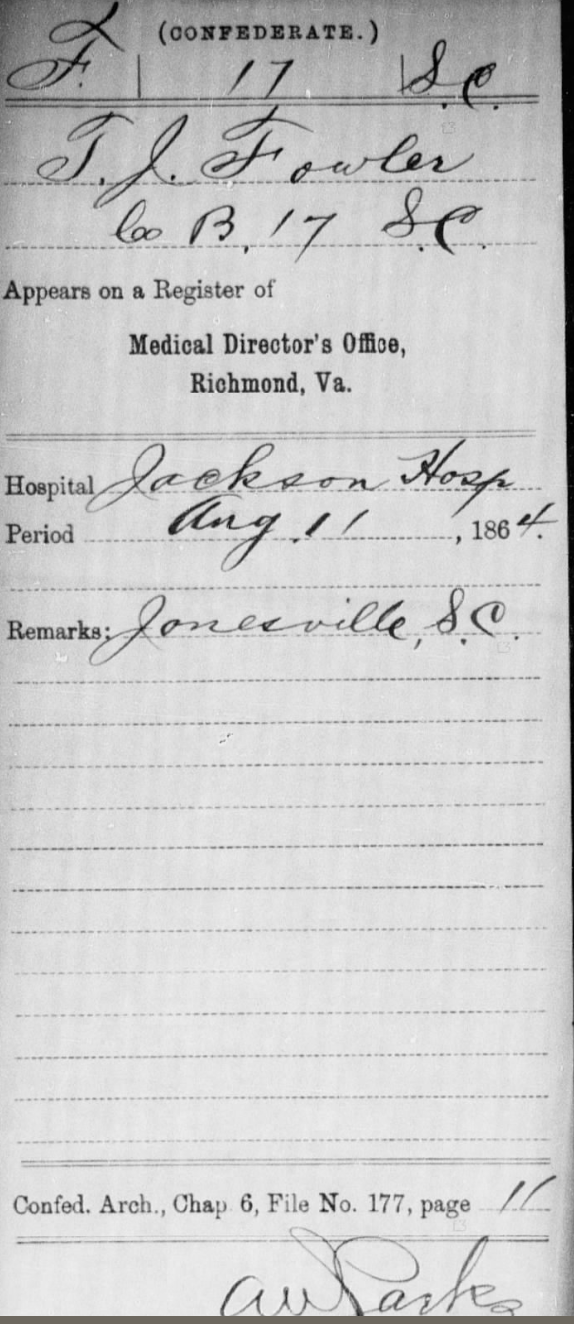 (CONFEDERATE.)
F. | 17 | S.C.
T. J. Fowler
Co B, 17 S.C.
Appears on a Register of
Medical Director's Office,
Richmond, Va.
Hospital Jackson Hosp
Period Aug. 11, 1864.
Remarks: Jonesville, S.C.
Confed. Arch., Chap 6, File No. 177, page 11
AW Parks